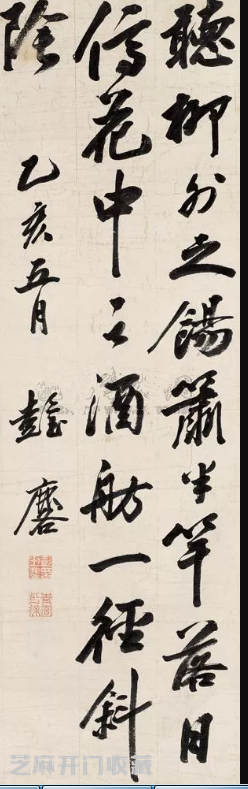 聽柳外之餳簫半竿落日
停花中之酒舫一徑斜
陰
乙亥五月
彭玉麐
芝麻开门收藏